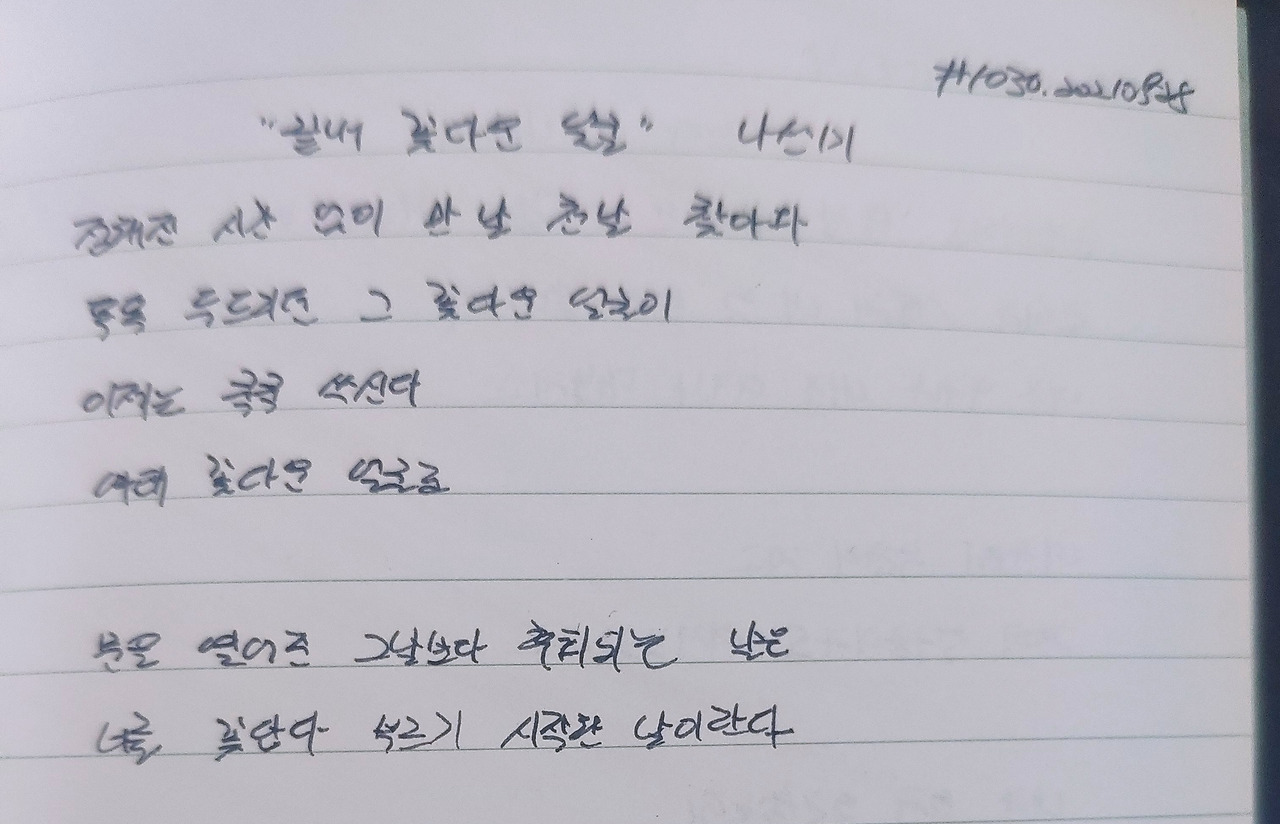 #1030. 20210828
"끝내 꽃다운 얼굴" 나선미
정해진 시간 없이 만 날 천 날 찾아와
똑똑 두드리던 그 꽃다운 얼굴이
이제는 쿡쿡 쑤신다
여태 꽃다운 얼굴로
문을 열어준 그날보다 후회되는 날은
너를 꽃 단다 부르기 시작한 날이란다